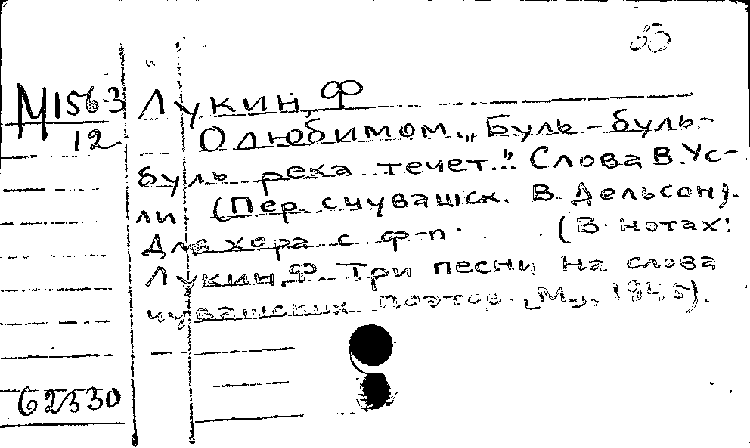 М156-3
12
Лукин, Ф
О любимом. „Буль-буль-
буль река течет." Слова В. Ус-
ли (Пер. с чувашск. В. Дельсон).
Для хора с ф-п. (В нотах:
Лукин, Ф. Три песни на слова
чувашских поэтов. М., 1945).
62330